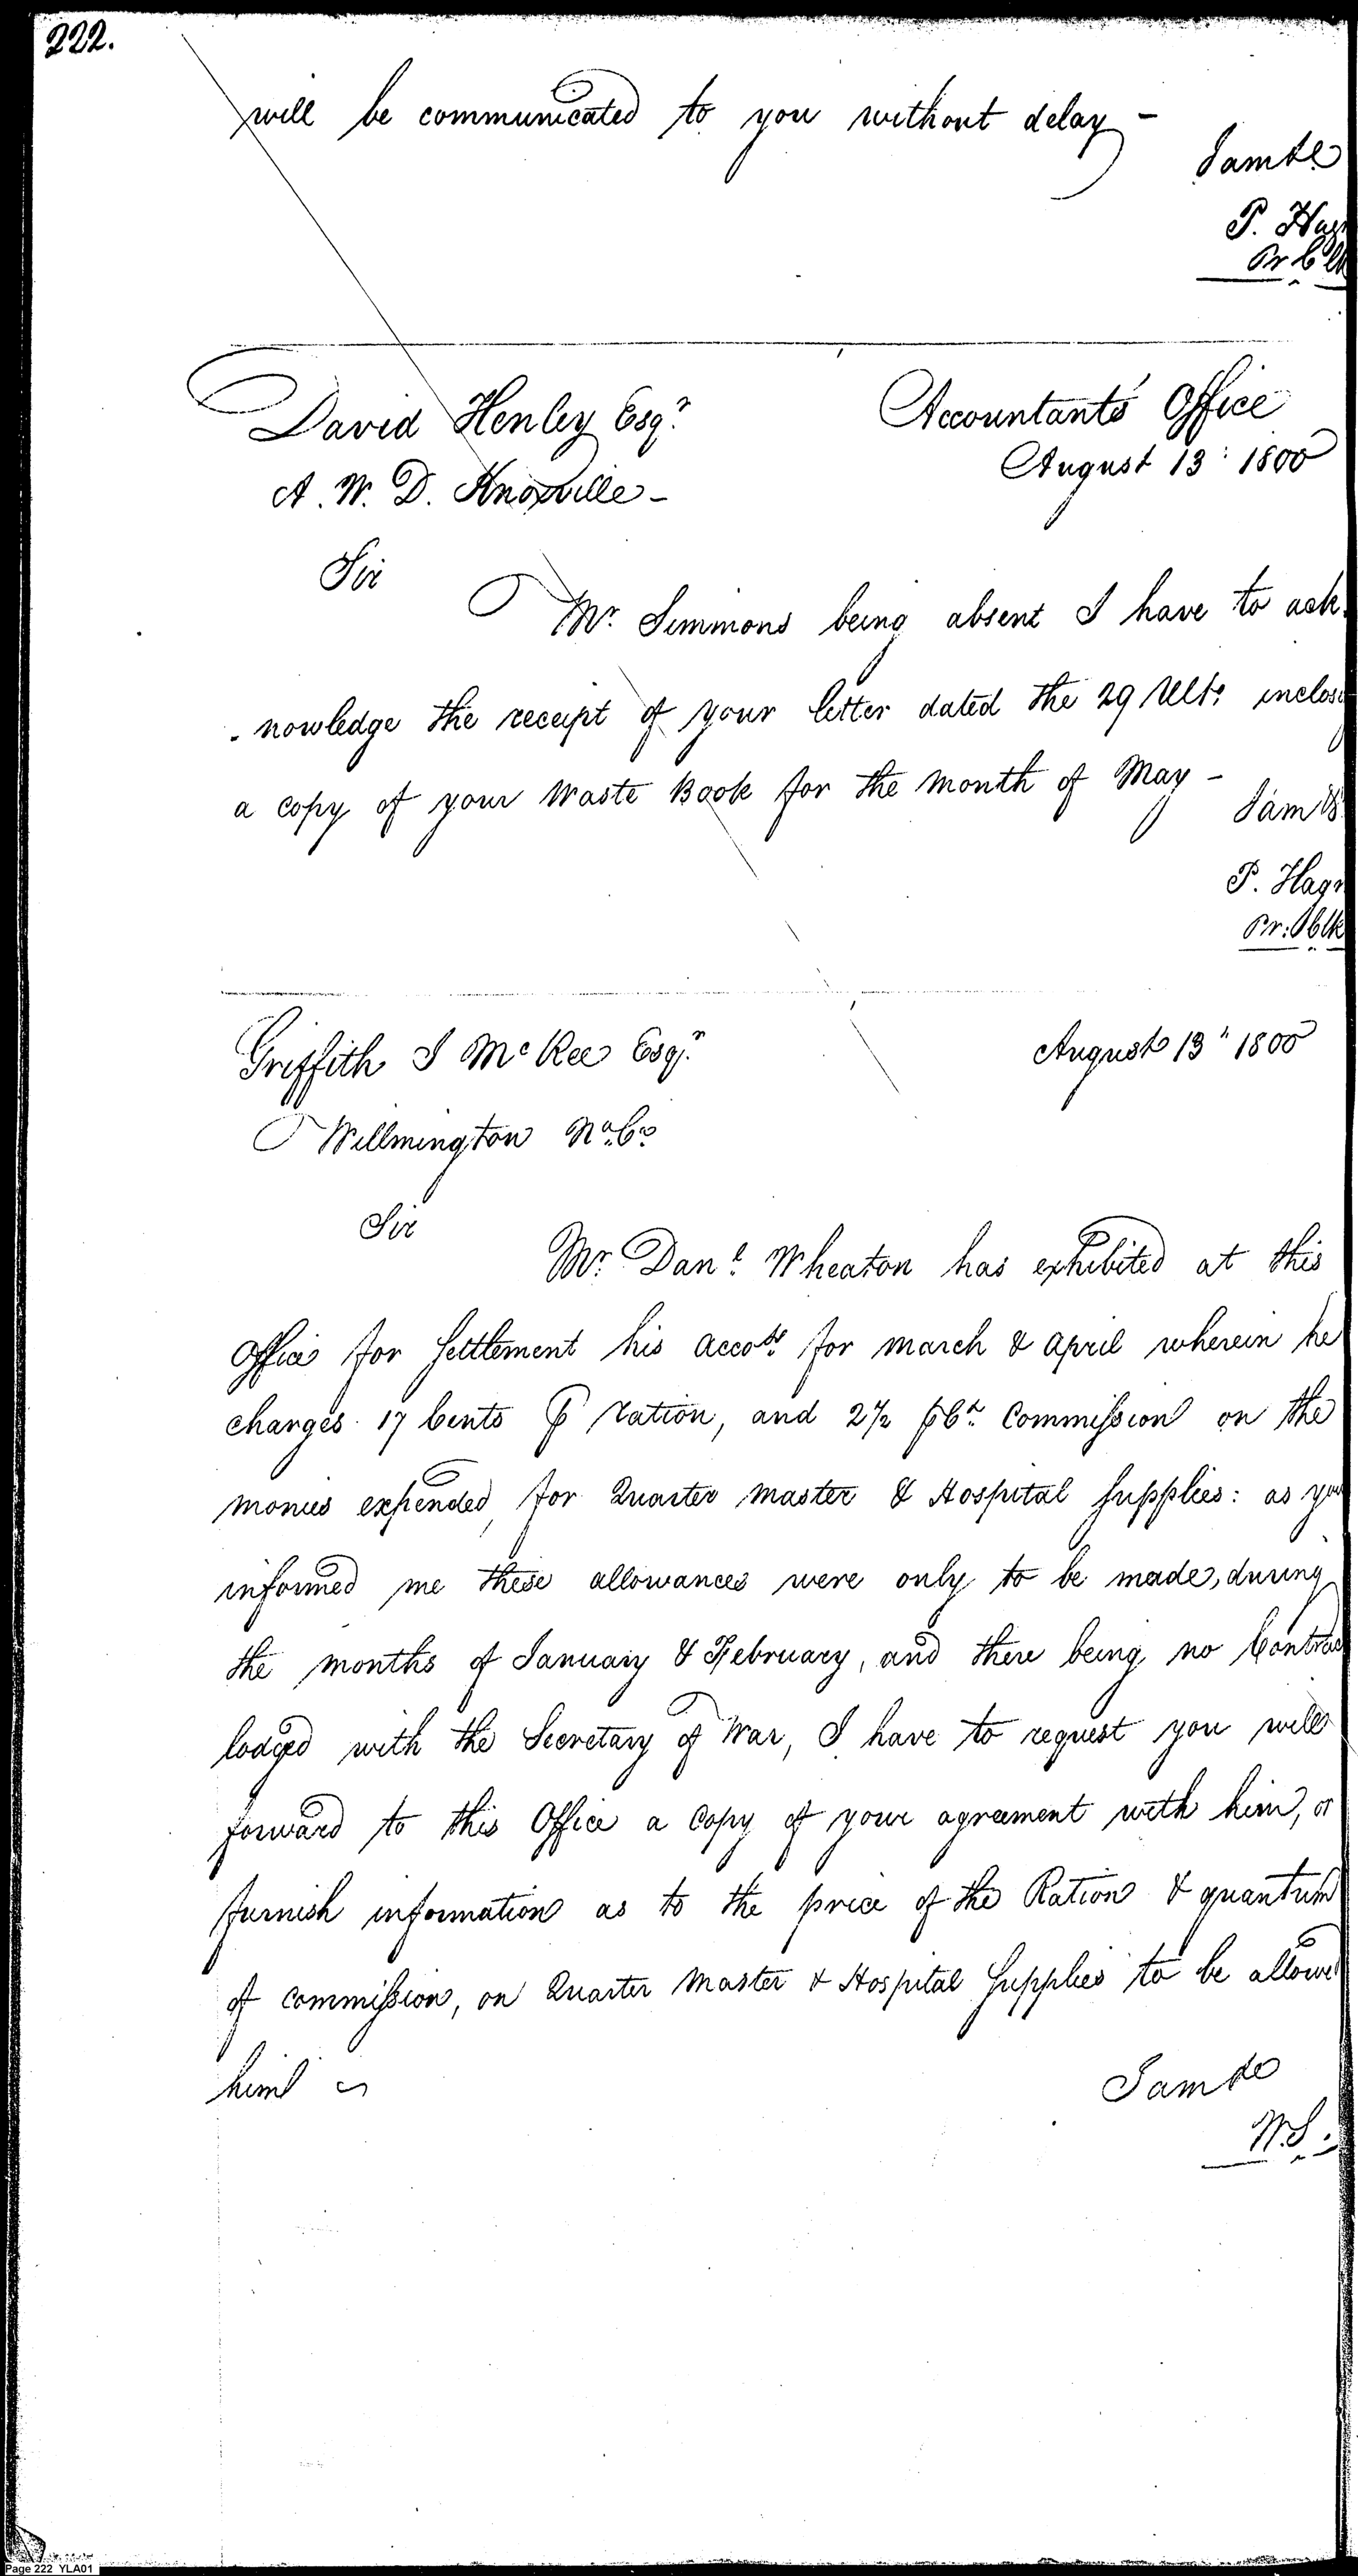 222.
will be communicated to you without delay –
I am &c
P. Hag
Pr Clk
David Henley Esqr.
Accountants Office
August 13: 1800
A. W. D. Knoxville –
Sir
Mr. Simmons being absent I have to ack
nowledge the receipt of your letter dated the 29 Ulto. inclos
a copy of your Waste Book for the month of May –
I am &
P. Hagn
Pr: Clk
Griffith I McRee Esqr.
August 13" 1800
Willmington No. Co.
Sir
Mr. Danl. Wheaton has exhibited at this
Office for Settlement his accots. for march & april wherein he
charges 17 Cents ⅌ ration, and 2½ ⅌Ct. Commission on the
monies expended, for Quarter master & Hospital Supplies: as you
informed me these allowances were only to be made, during
the months of January & February, and there being no Contrac
lodged with the Secretary of War, I have to request you will
forward to this Office a Copy of your agreement with him, or
furnish information as to the price of the Ration & quantum
of commission, on Quarter Master & Hospital Supplies to be allowed
him
I am &c
W.S.
Page 222 YLA01